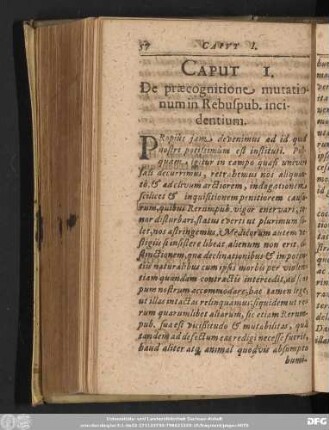 CAPVT I.
CAPUT I.
De præcognitione mutatio
num in Rebuspub. inci-
dentium.
PRopiùs jam devenimus ad id quod
nostri potissimum est instituti. Post
quam igitur in campo quasi univer
sali decurrimus, retrahimus nos aliquan
to, & ad clivum arctiorem, indagationem
scilicet & inquisitionem penitiorem cau
rum, quibus Rerumpub. vigor enervari,
mur disturbari, status everti ut plurimum
let, nos astringemus. Medicorum autem
stigiis si insistere libeat, alienum non erit,
stinctionem, qua declinationibus &
tiis naturalibus cum ipsis morbis per violen
tiam quandam contractis intercedit, ad
pum nostrum accommodare; hac tamen
ut illas intactas relinquamus; siquidem ut
rum quarumlibet aliarum, sic etiam Rerum-
pub. sua est vicissitudo & mutabilitas,
tandem ad defectum eas redigi necesse fuerit,
haud aliter atq; animal quodvis absumpto
humi-